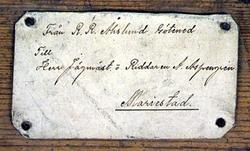 Från R. R. Ahslund Götened
Till
Herr Jägmäst. o Riddaren A Aspengren
Mariestad.